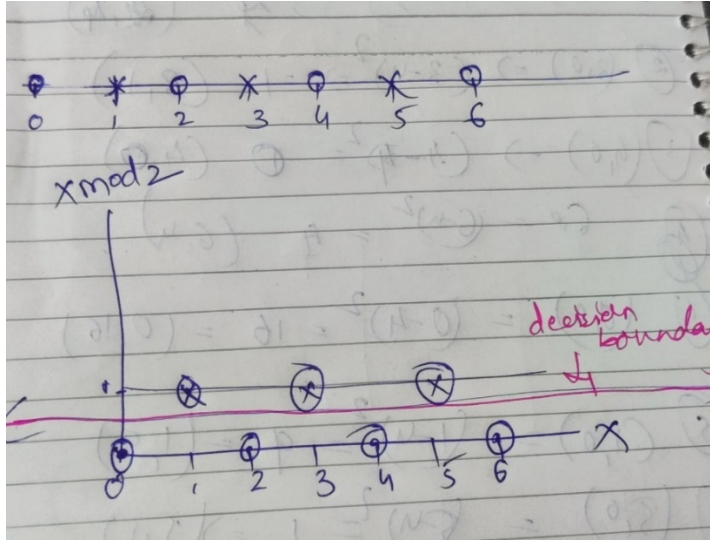 0 1 2 3 4 5 6
x mod 2
decision
bounda
1
X
0 1 2 3 4 5 6